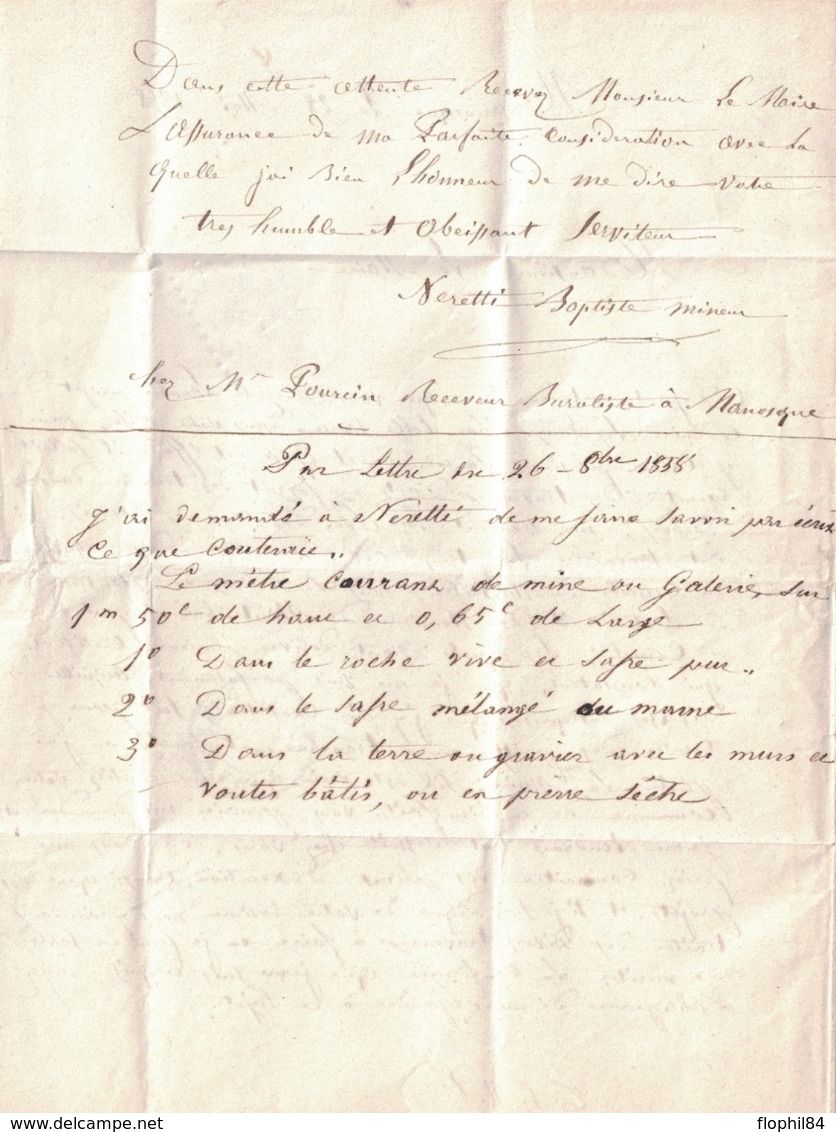 Dans cette attente Recevez Monsieur Le Maire
L'assurance de ma Parfaite Consideration avec La
quelle jai Bien Lhonneur de me dire votre
tres humble et Obeissant Serviteur
Neretti Baptiste mineur
chez Mr Pourcin Receveur Buraliste à Manosque
Par Lettre du 26 - 8bre 1858
J'ai demandé à Neretti de me faire savoir par écrit
Ce que Couterait..
Le mètre Courant de mine ou Galerie, sur
1m 50c de haut et 0,65c de Large
1o Dans le roche vive et safre pur..
2o Dans le safre mélangé du marne
3o Dans la terre ou gravier avec les murs et
voutes bâtis, ou en pierre sèche
flophil84